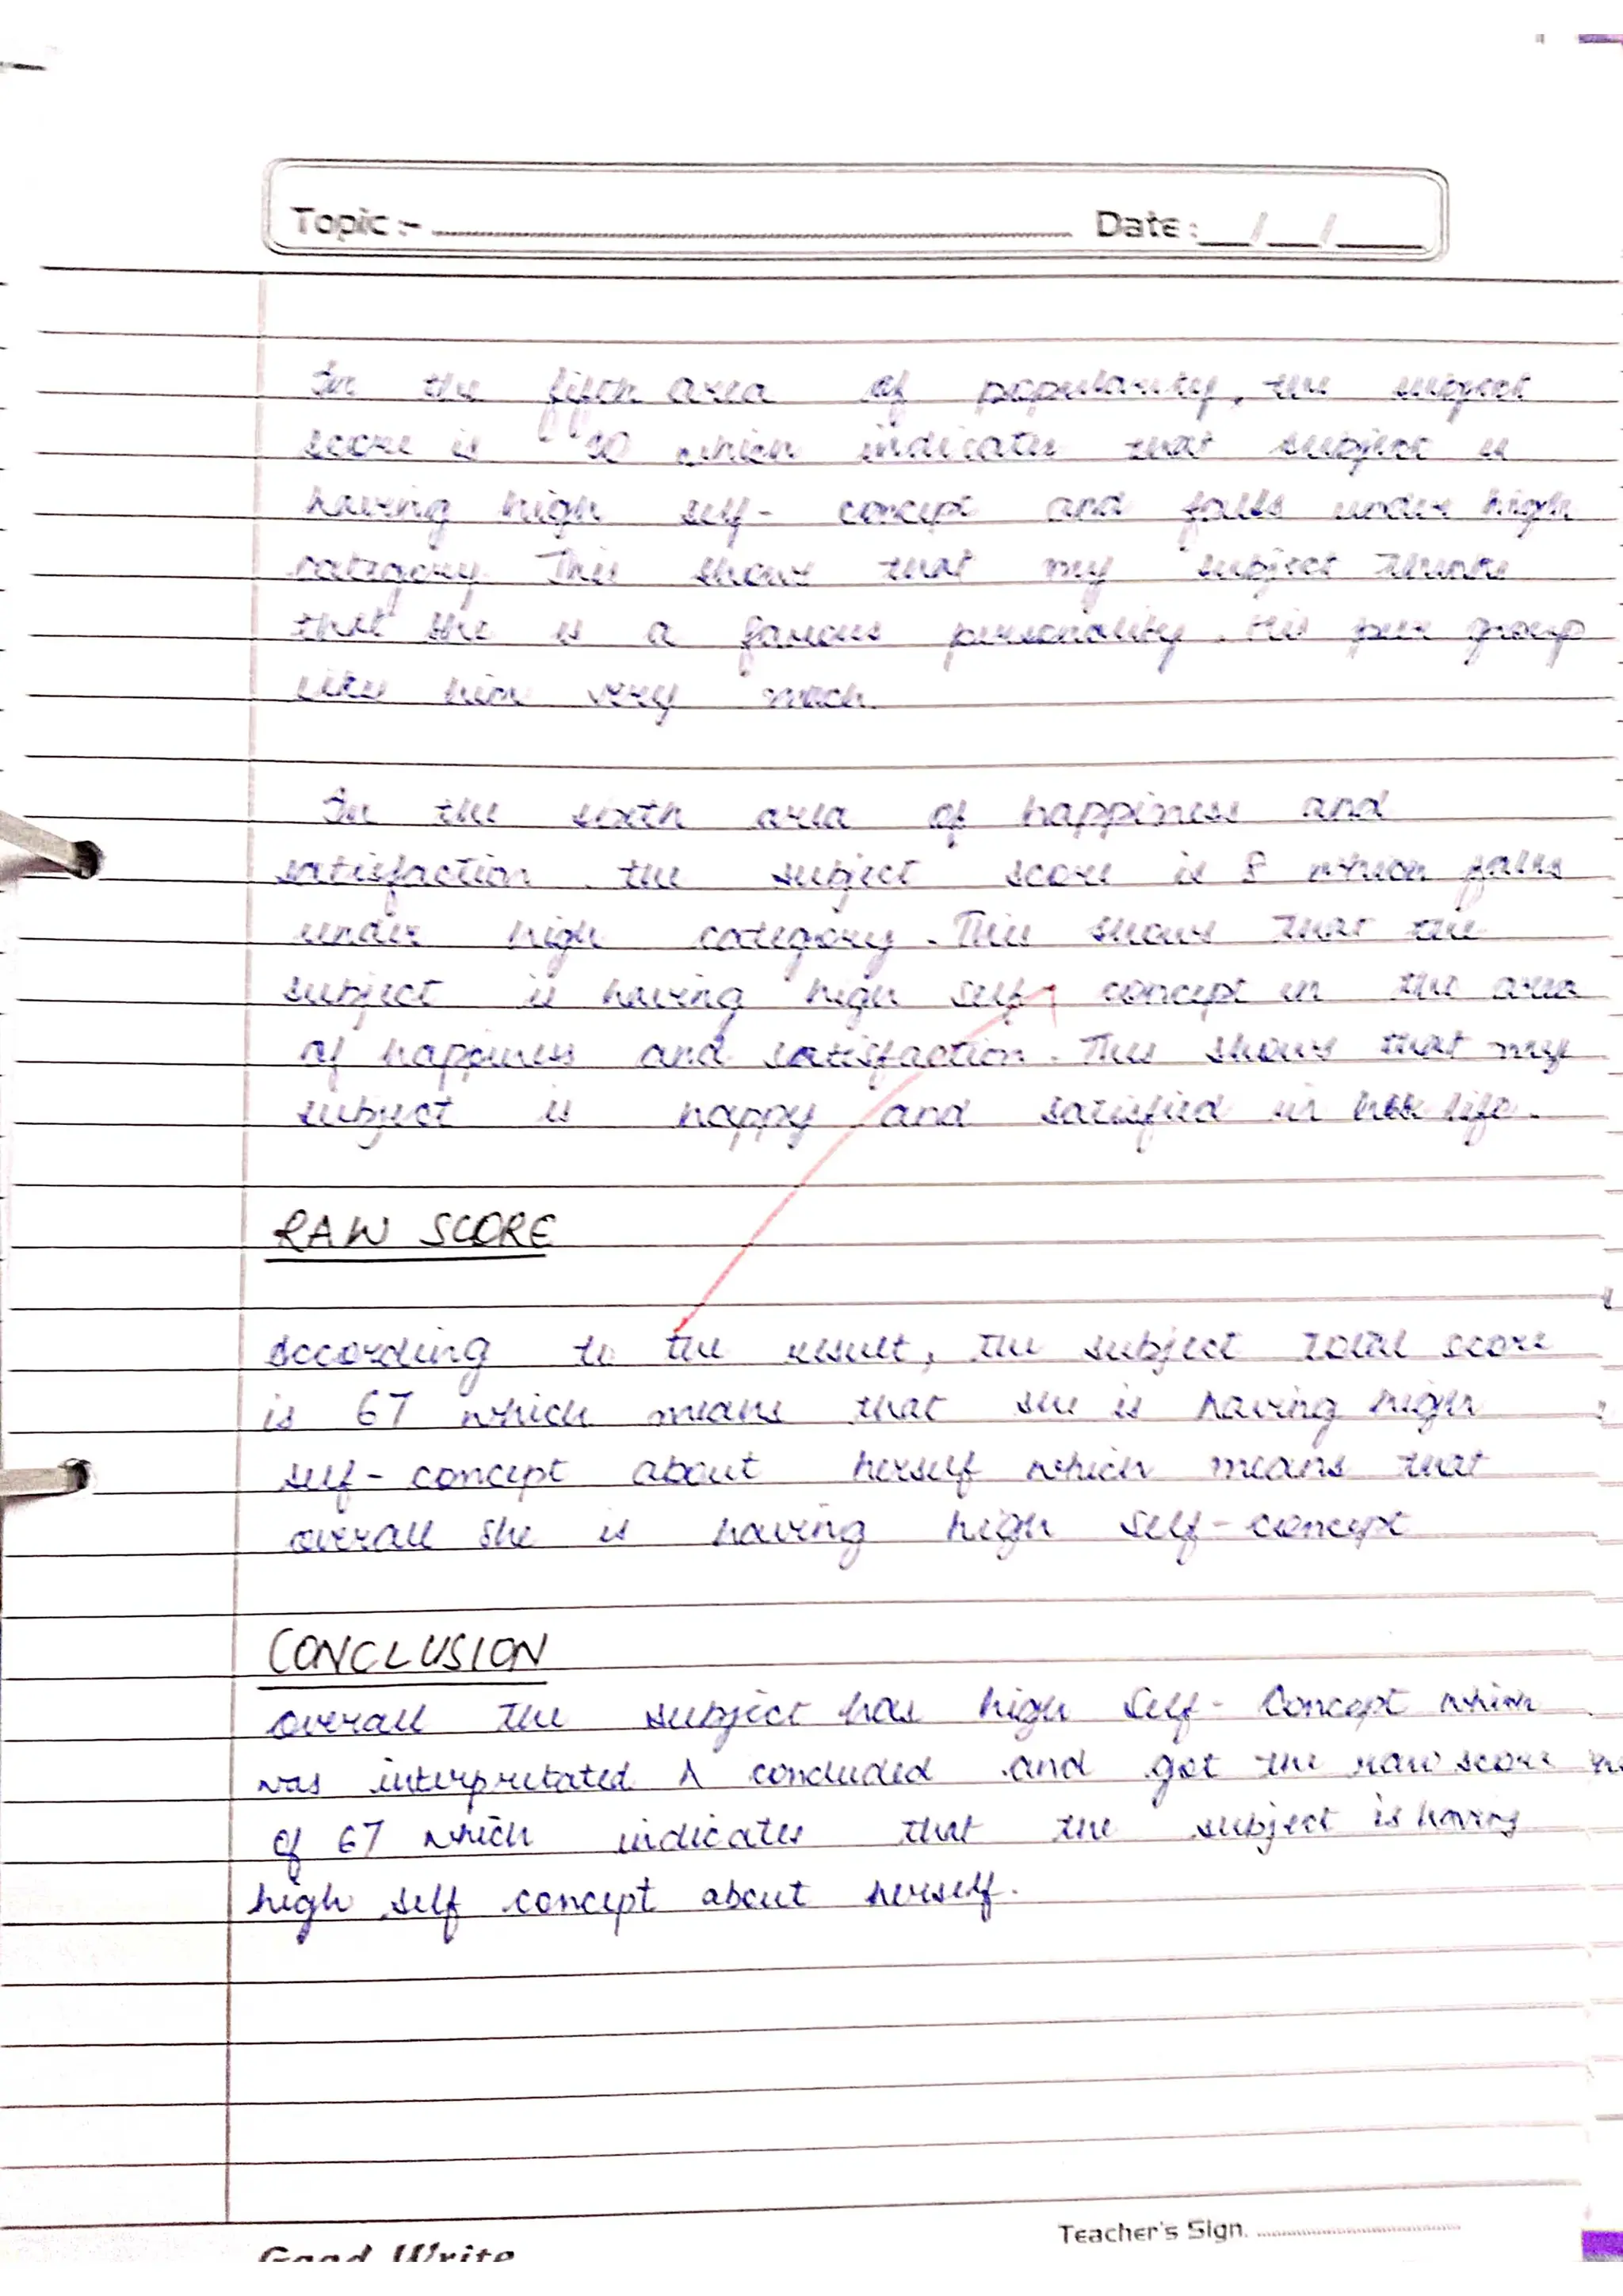 Topic :- Date : __/__/____
In the fifth area of popularity, the subject
score is 10 which indicates that subject is
having high self- concept and falls under high
category. This shows that my subject thinks
that she is a famous personality. His peer group
likes him very much.
In the sixth area of happiness and
satisfaction the subject score is 8 which falls
under high category. This shows that the
subject is having high self concept in the area
of happiness and satisfaction. This shows that my
subject is happy and satisfied in life.
RAW SCORE
According to the result, the subject total score
is 67 which means that she is having high
self- concept about herself which means that
overall she is having high self-concept
CONCLUSION
overall the subject has high Self- Concept which
was interpretated & concluded and got the raw score
of 67 which indicates that the subject is having
high self concept about herself.
Teacher's Sign.
Good Write